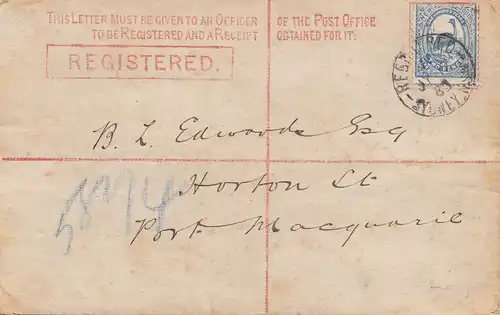 THIS LETTER MUST BE GIVEN TO AN OFFICER OF THE POST OFFICE
TO BE REGISTERED AND A RECEIPT OBTAINED FOR IT:
REGISTERED.
B. L. Edwards Esq
Horton St
Port Macquarie
SYDNEY